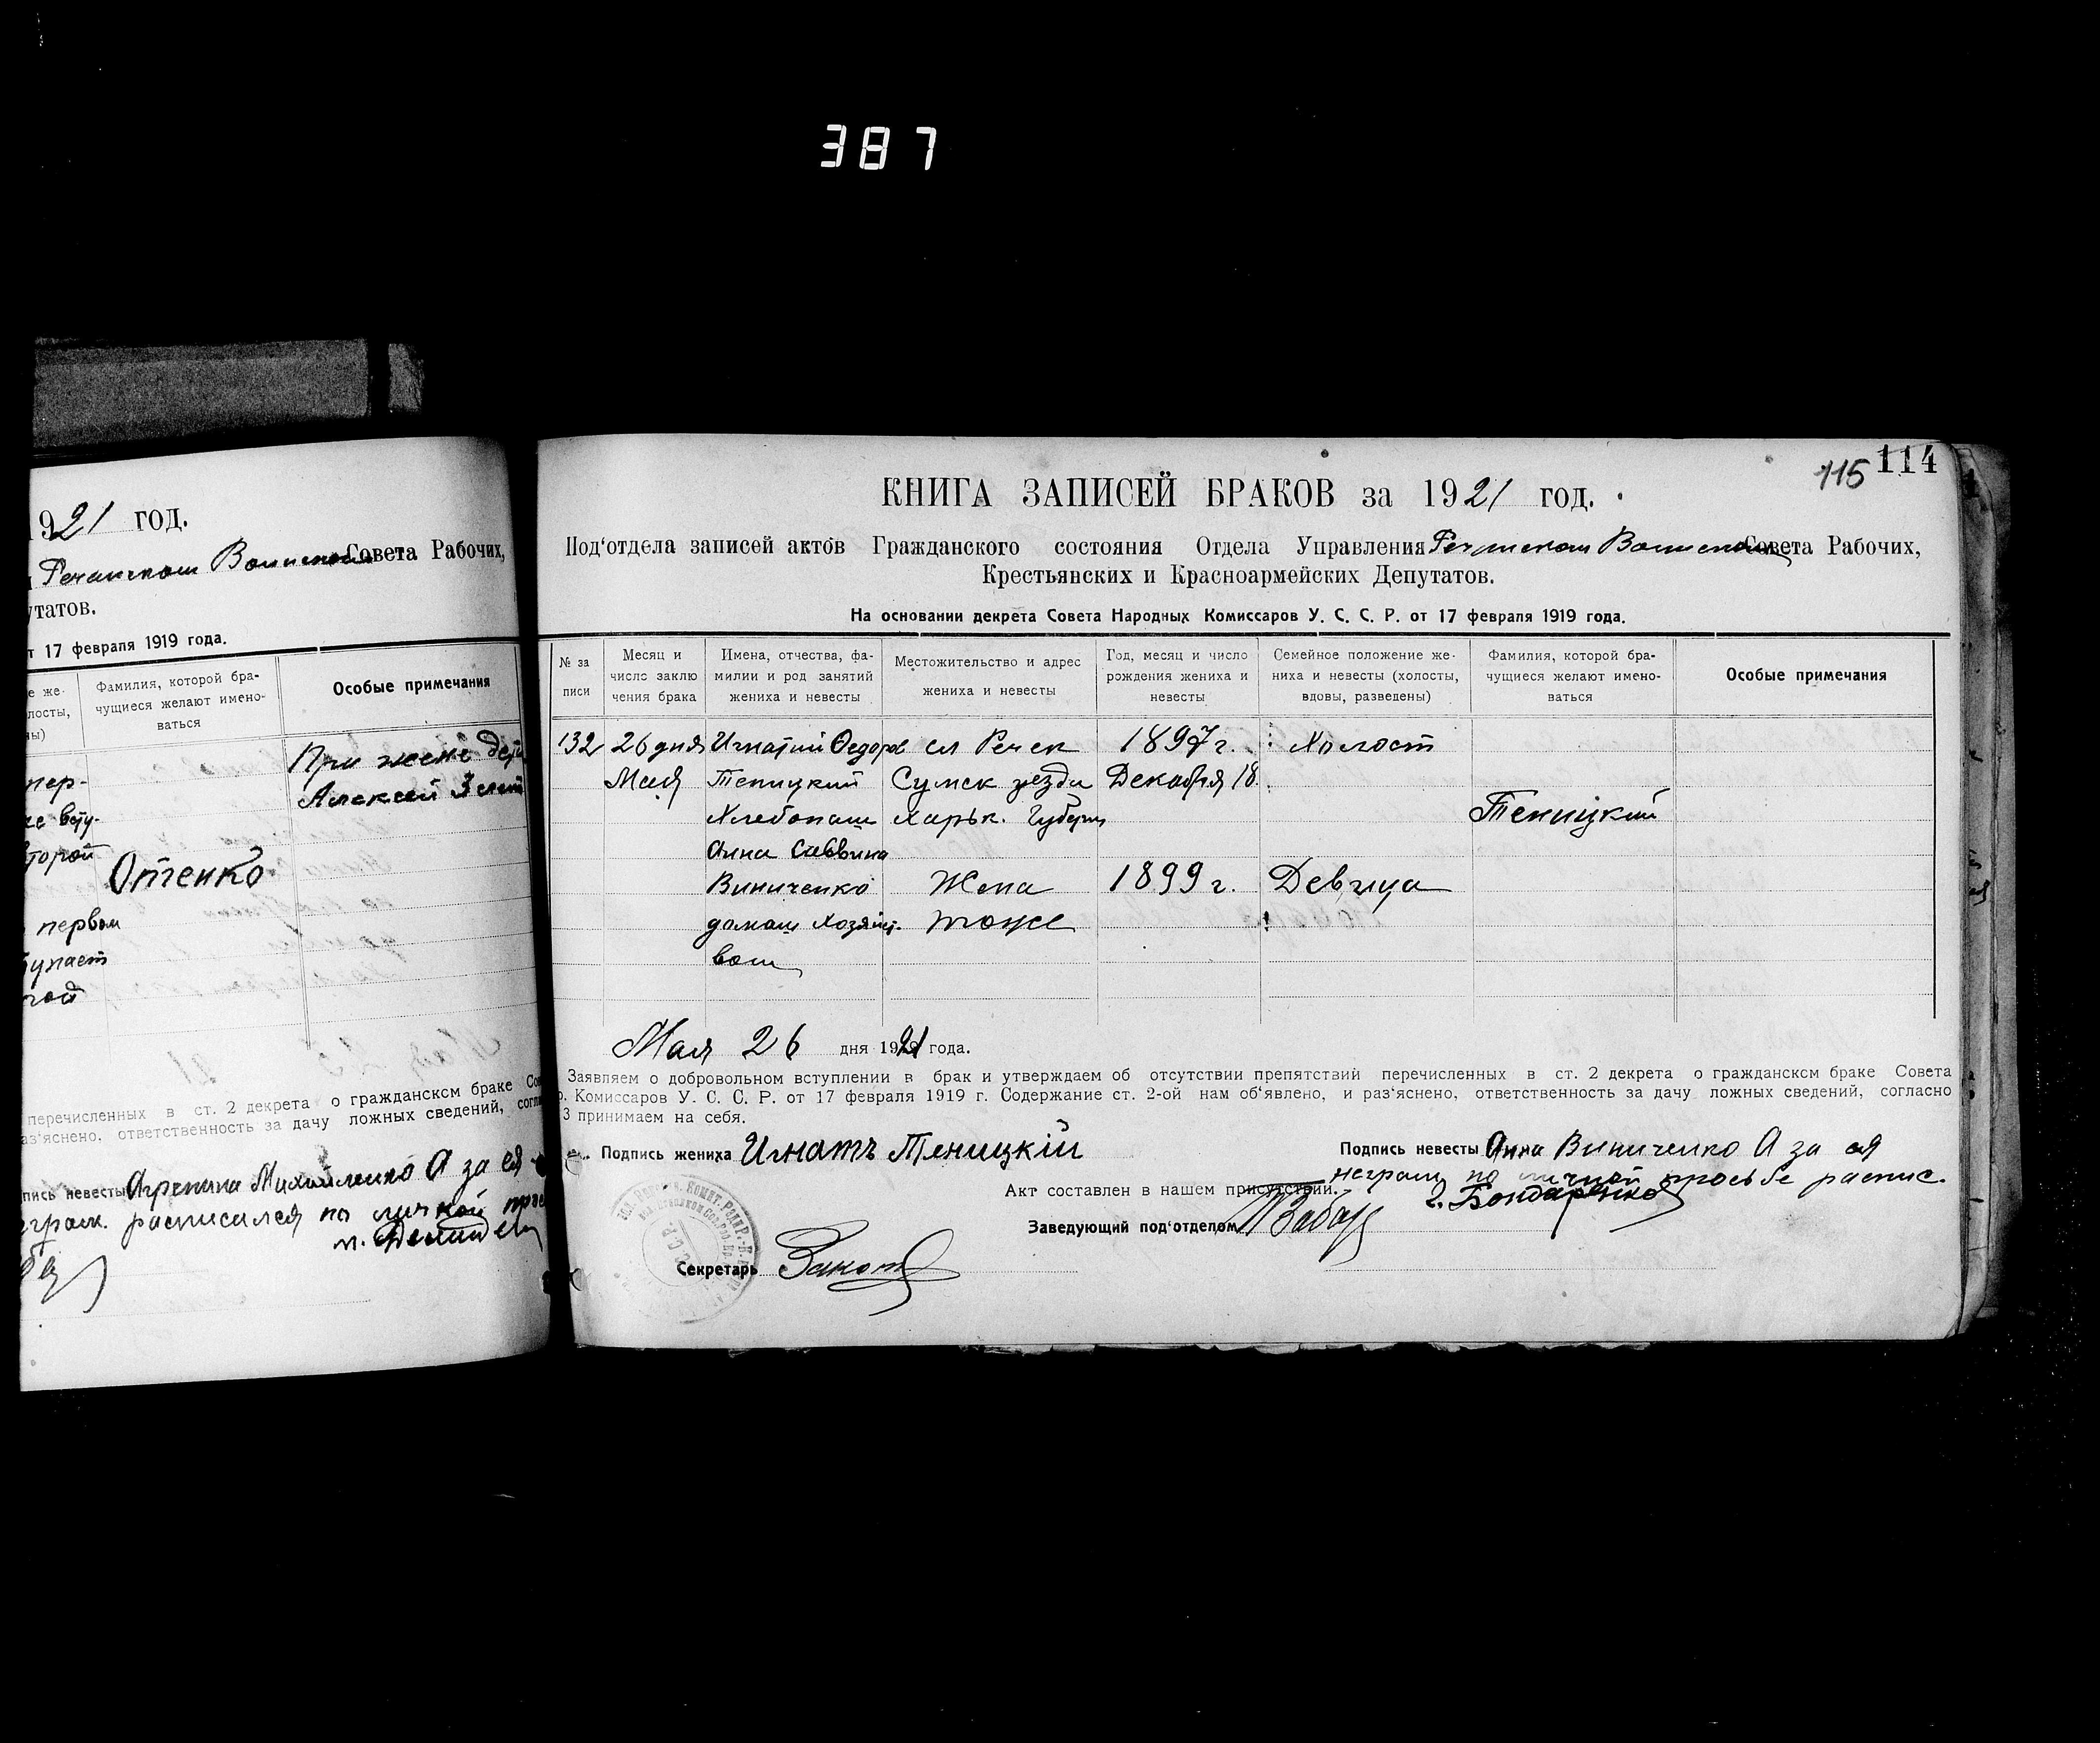 387
1921 год.
Совета Рабочих,
утатов.
т 17 февраля 1919 года.
е же-
лосты,
ны)
Фамилия, которой бра-
чущиеся желают имено-
ваться
Особые примечания
При жене дети
Алексей 3 лет
пер-
второй
Отенко
первом
рас'яснено, ответственность за дачу ложных сведений,
перечисленных в ст. 2 декрета о гражданском браке
пись невесты Агрепина Михайленко А за ея
расписался по личной
114
115
КНИГА ЗАПИСЕЙ БРАКОВ за 1921 год.
Под'отдела записей актов Гражданского состояния Отдела Управления Совета Рабочих,
Крестьянских и Красноармейских Депутатов.
На основании декрета Совета Народных Комиссаров У. С. С. Р. от 17 февраля 1919 года.
№ за
писи
Месяц и
число заклю
чения брака
Имена, отчества, фа-
милии и род занятий
жениха и невесты
Местожительство и адрес
жениха и невесты
Год, месяц и число
рождения жениха и
невесты
Семейное положение же-
ниха и невесты (холосты,
вдовы, разведены)
Фамилия, которой бра-
чущиеся желают имено-
ваться
Особые примечания
132 26 дня Игнатий Федоров сл Речек 1897 г. Холост
Мая Теницкий Сумск уезда Декабря 18
Хлебопаш Харьк. Губерн Теницкий
Анна Саввина
Виниченко Жена 1899 г. Девица
домаш хозяйс- тоже
вом
Мая 26 дня 1921 года.
Заявляем о добровольном вступлении в брак и утверждаем об отсутствии препятствий перечисленных в ст. 2 декрета о гражданском браке Совета
р. Комиссаров У. С. С. Р. от 17 февраля 1919 г. Содержание ст. 2-ой нам об'явлено, и раз'яснено, ответственность за дачу ложных сведений, согласно
3 принимаем на себя.
Подпись жениха Игнатъ Теницкій
Подпись невесты Анна Виниченко А за ея
неграм по личной просьбе распис.
г. Бондаренко
Акт составлен в нашем присутствии.
Заведующий под'отделом
Секретарь